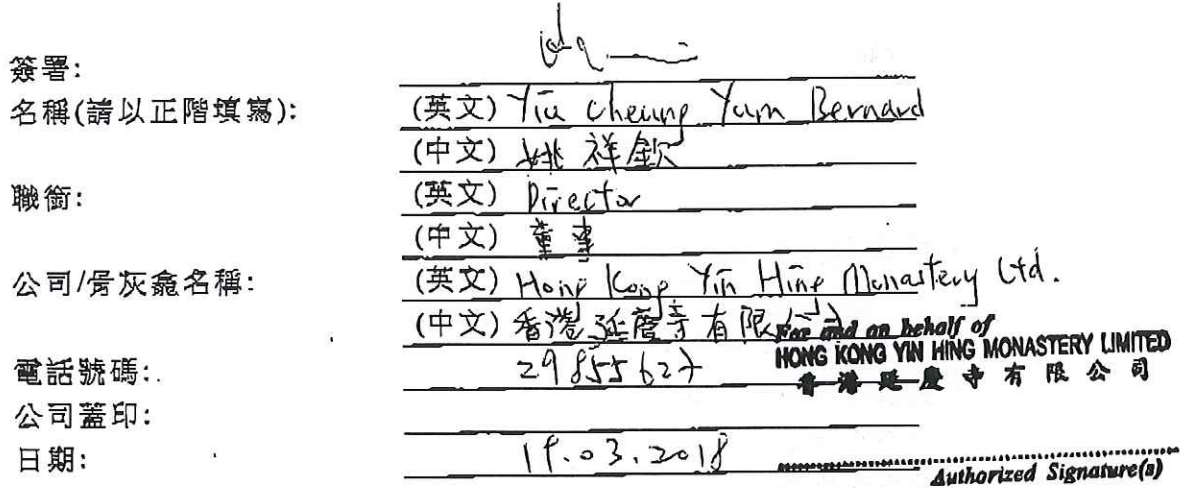 簽署:
名稱(請以正階填寫): (英文) Yiu Cheung Yum Bernard
(中文) 姚祥欽
職銜: (英文) Director
(中文) 董事
公司/骨灰龕名稱: (英文) Hong Kong Yin Hing Monastery Ltd.
(中文) 香港延慶寺有限公司
For and on behalf of
HONG KONG YIN HING MONASTERY LIMITED
香港延慶寺有限公司
電話號碼: 29855627
公司蓋印:
日期: 19.03.2018
Authorized Signature(s)